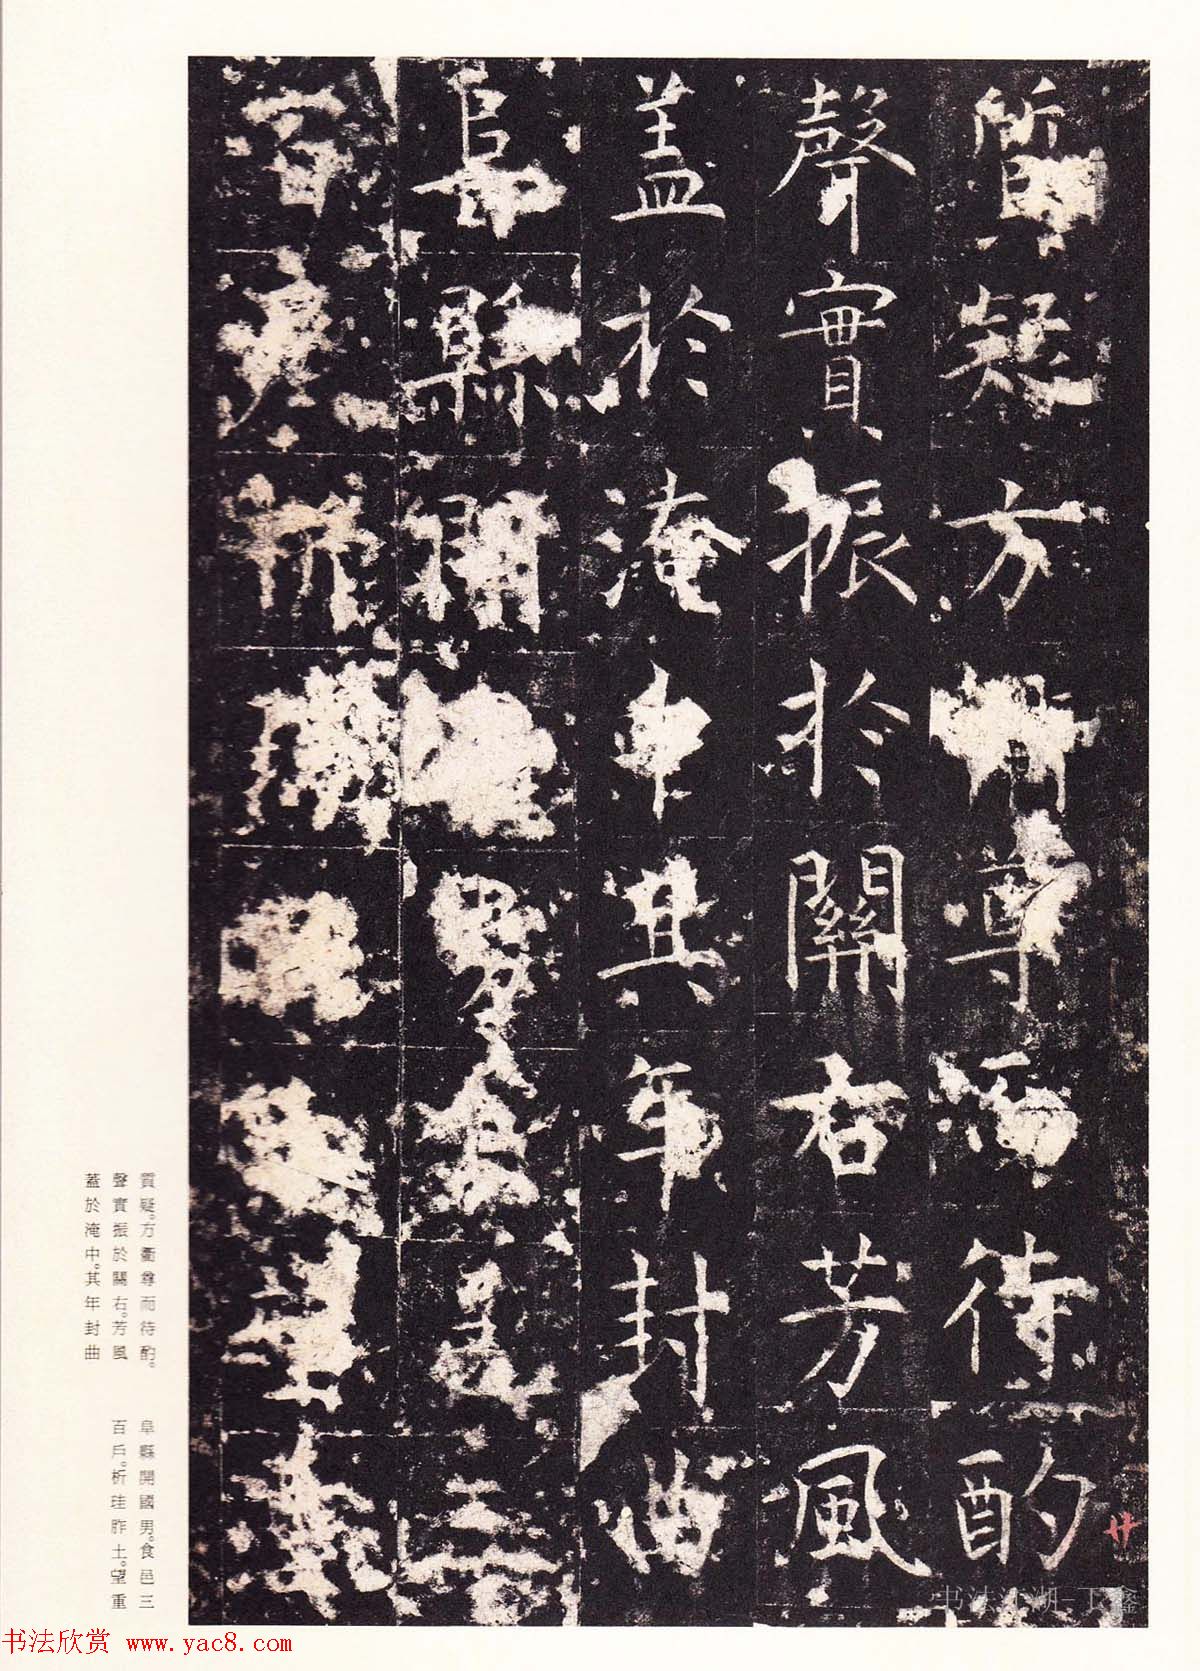 質疑方衢尊而待酌
聲實振於關右芳風
蓋於淹中其年封曲
阜縣開國男食邑三
百戶析珪胙土望重
廿
質疑。方衢尊而待酌。
聲實振於關右。芳風
蓋於淹中。其年封曲
阜縣開國男。食邑三
百戶。析珪胙土。望重
书法欣赏 www.yac8.com